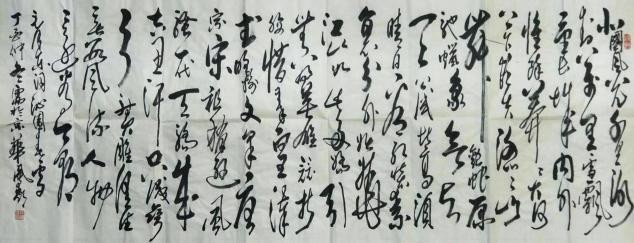 北国风光千里冰
封万里雪飘
望长城内外
惟馀莽莽大河
上下顿失滔滔山
舞银蛇原
驰蜡象欲与
天公试比高须
晴日看红装素
裹分外妖娆
江山如此多娇引
无数英雄竞折
腰惜秦皇汉
武略输文采唐
宗宋祖稍逊风
骚一代天骄成
吉思汗只识弯
弓射大雕俱往
矣数风流人物
还看今朝
毛泽东词沁园春雪
丁亥仲冬